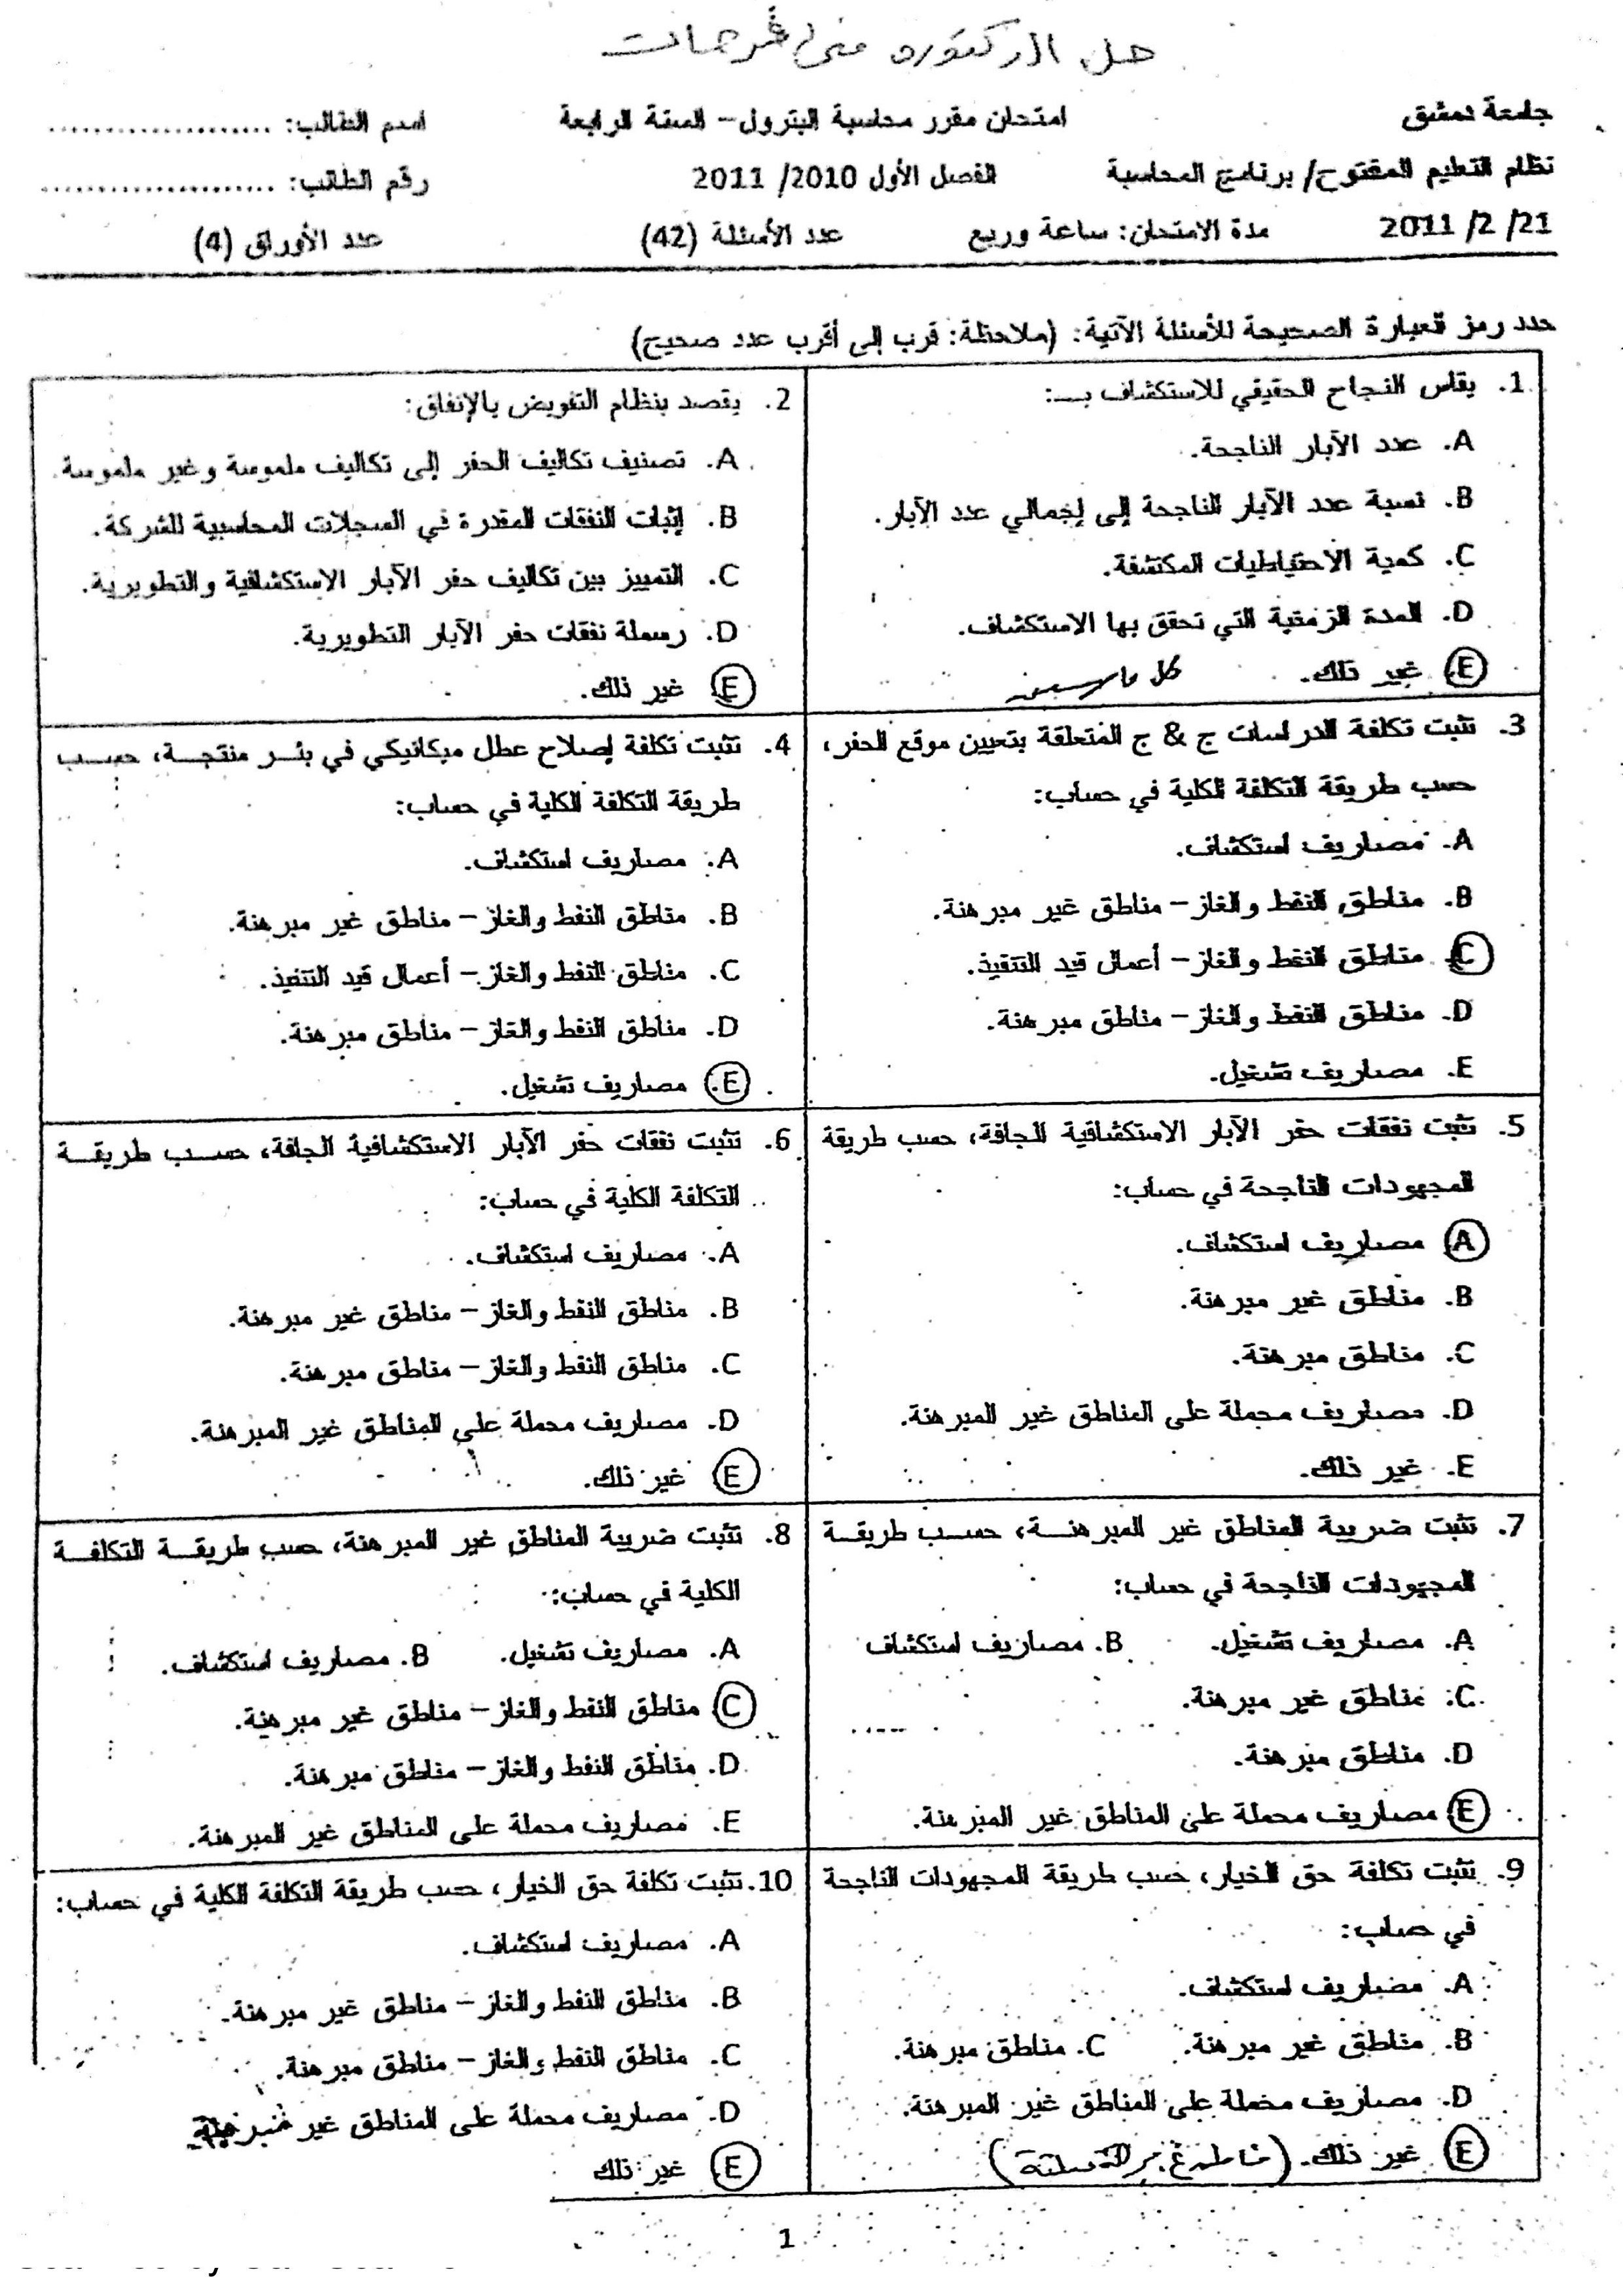 حل الدكتورة منى خرجات
جامعة دمشق امتحان مقرر محاسبة البترول – السنة الرابعة اسم الطالب: ....................
نظام التعليم المفتوح/ برنامج المحاسبة الفصل الأول 2010/ 2011 رقم الطالب: ....................
21/ 2/ 2011 مدة الامتحان: ساعة وربع عدد الأسئلة (42) عدد الأوراق (4)
حدد رمز العبارة الصحيحة للأسئلة الآتية: (ملاحظة: قرب إلى أقرب عدد صحيح)
1. يقاس النجاح الحقيقي للاستكشاف بـــ:
A. عدد الآبار الناجحة.
B. نسبة عدد الآبار الناجحة إلى إجمالي عدد الآبار.
C. كمية الاحتياطيات المكتشفة.
D. المدة الزمنية التي تحقق بها الاستكشاف.
E. غير ذلك. كل ما سبق
2. يقصد بنظام التفويض بالإنفاق:
A. تصنيف تكاليف الحفر إلى تكاليف ملموسة وغير ملموسة.
B. إثبات النفقات المقدرة في السجلات المحاسبية للشركة.
C. التمييز بين تكاليف حفر الآبار الاستكشافية والتطويرية.
D. رسملة نفقات حفر الآبار التطويرية.
E. غير ذلك.
3. تثبت تكلفة الدراسات ج & ج المتعلقة بتعيين موقع الحفر،
حسب طريقة التكلفة الكلية في حساب:
A. مصاريف استكشاف.
B. مناطق النفط والغاز – مناطق غير مبرهنة.
C. مناطق النفط والغاز – أعمال قيد التنفيذ.
D. مناطق النفط والغاز – مناطق مبرهنة.
E. مصاريف تشغيل.
4. تثبت تكلفة إصلاح عطل ميكانيكي في بئر منتجة، حسب
طريقة التكلفة الكلية في حساب:
A. مصاريف استكشاف.
B. مناطق النفط والغاز – مناطق غير مبرهنة.
C. مناطق النفط والغاز – أعمال قيد التنفيذ.
D. مناطق النفط والغاز – مناطق مبرهنة.
E. مصاريف تشغيل.
5. تثبت نفقات حفر الآبار الاستكشافية الجافة، حسب طريقة
المجهودات الناجحة في حساب:
A. مصاريف استكشاف.
B. مناطق غير مبرهنة.
C. مناطق مبرهنة.
D. مصاريف محملة على المناطق غير المبرهنة.
E. غير ذلك.
6. تثبت نفقات حفر الآبار الاستكشافية الجافة، حسب طريقة
التكلفة الكلية في حساب:
A. مصاريف استكشاف.
B. مناطق النفط والغاز – مناطق غير مبرهنة.
C. مناطق النفط والغاز – مناطق مبرهنة.
D. مصاريف محملة على المناطق غير المبرهنة.
E. غير ذلك.
7. تثبت ضريبة المناطق غير المبرهنة، حسب طريقة
المجهودات الناجحة في حساب:
A. مصاريف تشغيل. B. مصاريف استكشاف
C. مناطق غير مبرهنة.
D. مناطق مبرهنة.
E. مصاريف محملة على المناطق غير المبرهنة.
8. تثبت ضريبة المناطق غير المبرهنة، حسب طريقة التكلفة
الكلية في حساب:
A. مصاريف تشغيل. B. مصاريف استكشاف.
C. مناطق النفط والغاز – مناطق غير مبرهنة.
D. مناطق النفط والغاز – مناطق مبرهنة.
E. مصاريف محملة على المناطق غير المبرهنة.
9. تثبت تكلفة حق الخيار، حسب طريقة المجهودات الناجحة
في حساب:
A. مصاريف استكشاف.
B. مناطق غير مبرهنة. C. مناطق مبرهنة.
D. مصاريف محملة على المناطق غير المبرهنة.
E. غير ذلك.
10. تثبت تكلفة حق الخيار، حسب طريقة التكلفة الكلية في حساب:
A. مصاريف استكشاف.
B. مناطق النفط والغاز – مناطق غير مبرهنة.
C. مناطق النفط والغاز – مناطق مبرهنة.
D. مصاريف محملة على المناطق غير مبرهنة.
E. غير ذلك
1